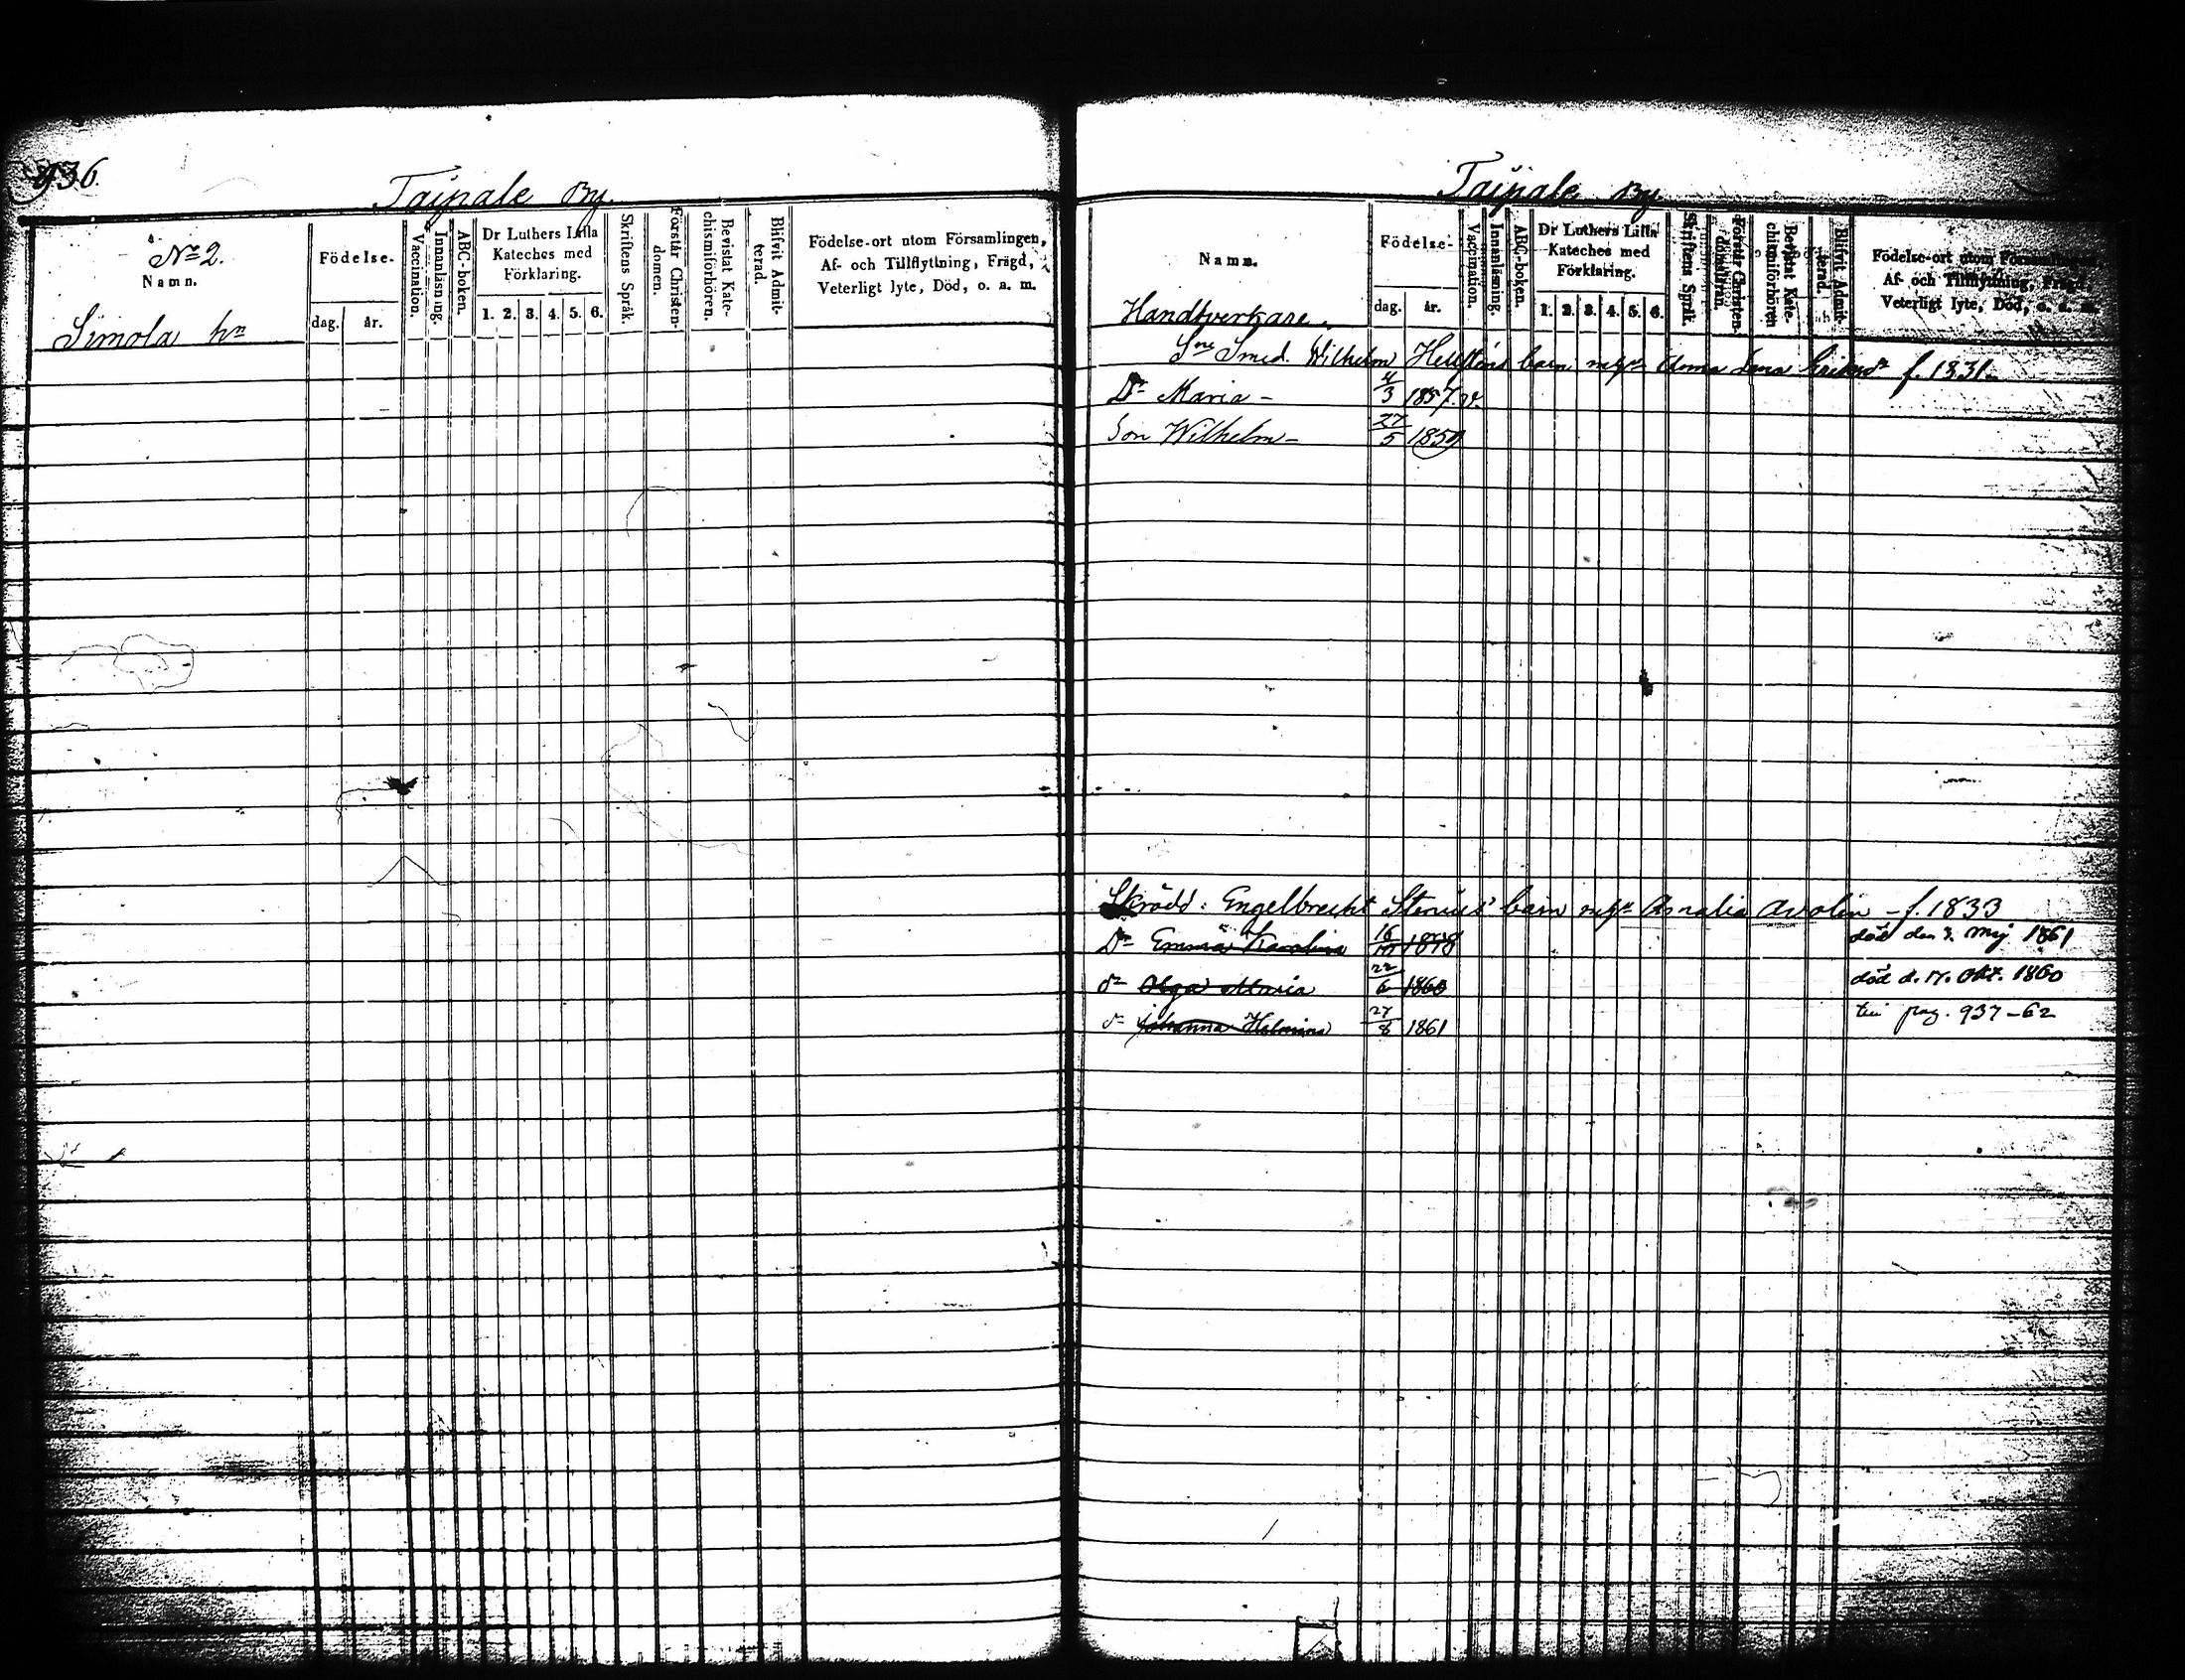 936.
Taipale By.
No 2.
Namn.
Födelse.
dag. år.
Vaccination.
Innanläsning.
ABC-boken.
Dr Luthers Lilla
Kateches med
Förklaring.
1. 2. 3. 4. 5. 6.
Skriftens Språk.
Förstår Christen-
domen.
Bevistat Kate-
chismiförhören.
Blifvit Admit-
terad.
Födelse-ort utom Församlingen,
Af- och Tillflyttning, Frägd,
Veterligt lyte, Död, o. a. m.
Simola hn
Taipale By
Namn.
Födelse-
dag. år.
Vaccination.
Innanläsning.
ABC-boken.
Dr Luthers Lilla
Kateches med
Förklaring.
1. 2. 3. 4. 5. 6.
Skriftens Språk.
Förstår Christen-
Bevistat Kate-
chismiförhören
Blifvit Admit-
terad.
Födelse-ort utom Församlingen
Af- och Tillflyttning, Frägd,
Veterligt lyte, Död, o. a. m.
Handtverkare.
Smed. Wilhelm barn Anna Lena f. 1831.
Dr Maria - 4/3 1857. v.
Son Wilhelm - 27/5 1859
Skrädd: Engelbrecht Stenius' barn Amalia Avolin - f. 1833
Dr Emma Karolina 16 död den 3. Maj 1861
dr Olga Maria 22/6 1860 död d. 17. Okt. 1860
dr Johanna Helmina 27/8 1861 pag. 937-62